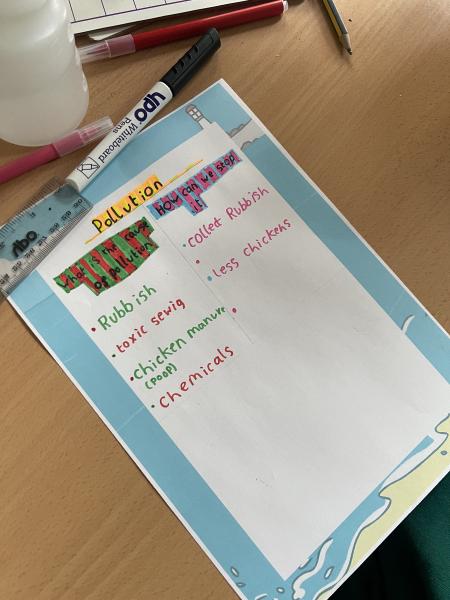 Pollution
What is the cause
of pollution
• Rubbish
• toxic sewig
• chicken manure
(poop)
• chemicals
How can we stop
it
• collet Rubbish
•
• less chickens
•
Whiteboard
Pens